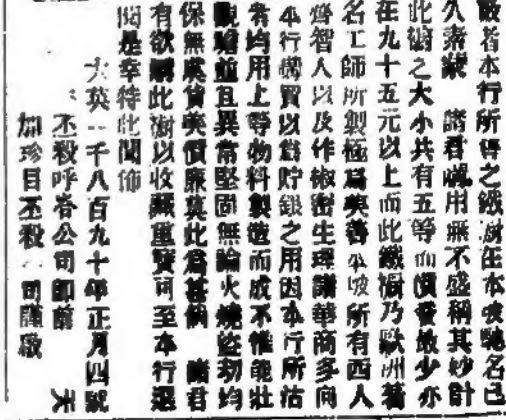 敬者本行所售之鐵廚在本坡馳名已
久素蒙 諸君觀用無不盛稱其妙計
此廚之大小共有五等而價發最少亦
在九十五元以上而此鐵櫥乃歐洲著
名工師所製極為美善本坡所有西人
聲智人以及作椒密生理諸華商多向
本行購買以為貯銀之用因本行所沽
者均用上等物料製造而成不惟能壯
觀瞻並且異常堅固無論火燒盜刼均
保無虞貨美價廉莫此為甚倘 諸君
有欲購此櫥以收藏重寶可至本行選
閱是幸特此聞佈
大英一千八百九十年正月四號
丕殺呼吝公司即前 天
加珍目丕殺公司謹啟